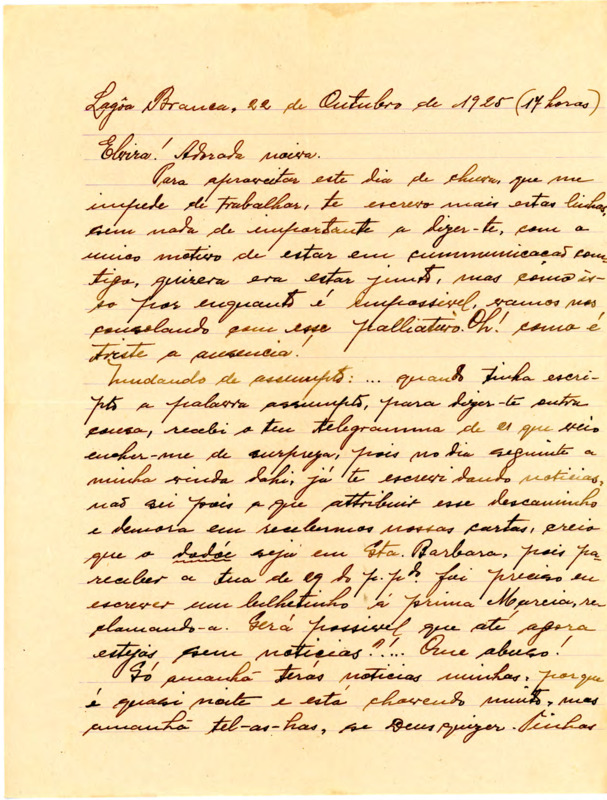 Lagôa Branca, 22 de Outubro de 1925 (17 horas)
Elvira! Adorada noiva.
Para aproveitar este dia de chuva, que me
impede de trabalhar, te escrevo mais estas linhas,
sem nada de importante a dizer-te, com o
unico motivo de estar em cummunicação com-
tigo, quizera era estar junto, mas como is-
so por enquanto é impossivel, vamos nos
consolando com esse palliativo. Oh! como é
triste a ausencia!
Mudando de assumpto: ... quando tinha escri-
pto a palavra assumpto, para dizer-te outra
cousa, recebi o teu telegramma de 21 que veio
encher-me de surpreza, pois no dia seguinte a
minha vinda dahi, já te escrevi dando noticias,
não sei pois a que attribuir esse descaminho
e demora em recebermos nossas cartas, creio
que o dodóe seja em Sta. Barbara, pois pa.
receber a tua de 29 do p. pdo. foi preciso eu
escrever um bilhetinho á prima Marcia, re-
clamando-a. Será possivel que até agora
estejas sem noticias?!... Que abuso!
Só amanhã terás noticias minhas, porque
é quasi noite e está chovendo muito, mas
amanhã tel-as-has, se Deus quizer. Tinhas